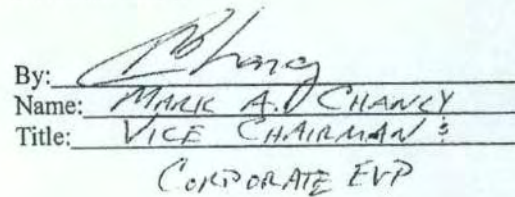 By:
Name: MARK A. CHANCY
Title: VICE CHAIRMAN &
CORPORATE EVP